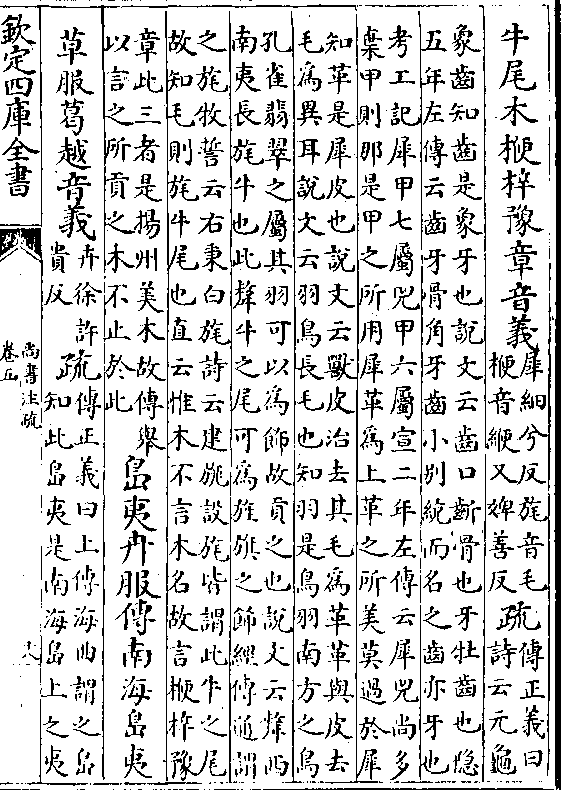 牛尾木楩梓豫章音義犀細兮反旄音毛楩音緶又婢善反疏傳正義曰詩云元龜
象齒知齒是象牙也說文云齒口齗骨也牙牡齒也隐
五年左傳云齒牙骨角牙齒小别統而名之齒亦牙也
考工記犀甲七屬兕甲六屬宣二年左傳云犀兕尚多
棄甲則那是甲之所用犀革為上革之所美莫過於犀
知革是犀皮也說文云獸皮治去其毛為革革與皮去
毛為異耳說文云羽鳥長毛也知羽是鳥羽南方之鳥
孔雀翡翠之屬其羽可以為飾故貢之也說文云犛西
南夷長旄牛也此犛牛之尾可為旌旗之飾經傳通謂
之旄牧誓云右秉白旄詩云建旐設旄皆謂此牛之尾
故知毛則旄牛尾也直云惟木不言木名故言楩梓豫
章此三者是揚州美木故傳舉以言之所貢之木不止於此島夷卉服傳南海島夷
草服葛越音義卉徐許貴反疏傳正義曰上傳海曲謂之島知此島夷是南海島上之夷
欽定四庫全書
尚書注疏
卷五